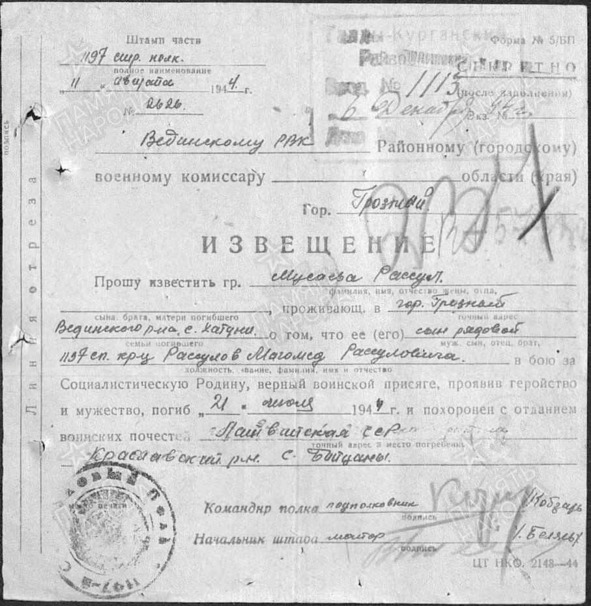 Штамп части
1197 стр. полк.
полное наименование
"11" августа 1944 г.
№ 2626
Форма № 5/БП
СЕКРЕТНО
(после заполнения)
Талды-Курганск
Вход. № 1113
6 Декабря
Вединскому РВК Районному (городскому)
военному комиссару области (края)
Гор. Грозный
ИЗВЕЩЕНИЕ
Прошу известить гр. Мусаева Рассул.
фамилия, имя, отчество жены, отца,
, проживающ. в гор. Грозный
сына, брата, матери погибшего точный адрес
Вединского р-на с. Хатуни о том, что ее (его) сын рядовой
семьи погибшего муж, сын, отец, брат,
1197 сп. кр-ц Рассулов Магомед Рассулович. в бою за
должность, звание, фамилия, имя и отчество
Социалистическую Родину, верный воинской присяге, проявив геройство
и мужество, погиб "21" июля 1944 г. и похоронен с отданием
воинских почестей Латвийская ССР
точный адрес и место погребения
Краславский р-н. с.
Командир полка подполковник Кобзарь
подпись
Начальник штаба майор
подпись
ЦТ НКО. 2148—44
Линия отреза
подпись
ПАМЯТЬ НАРОДА